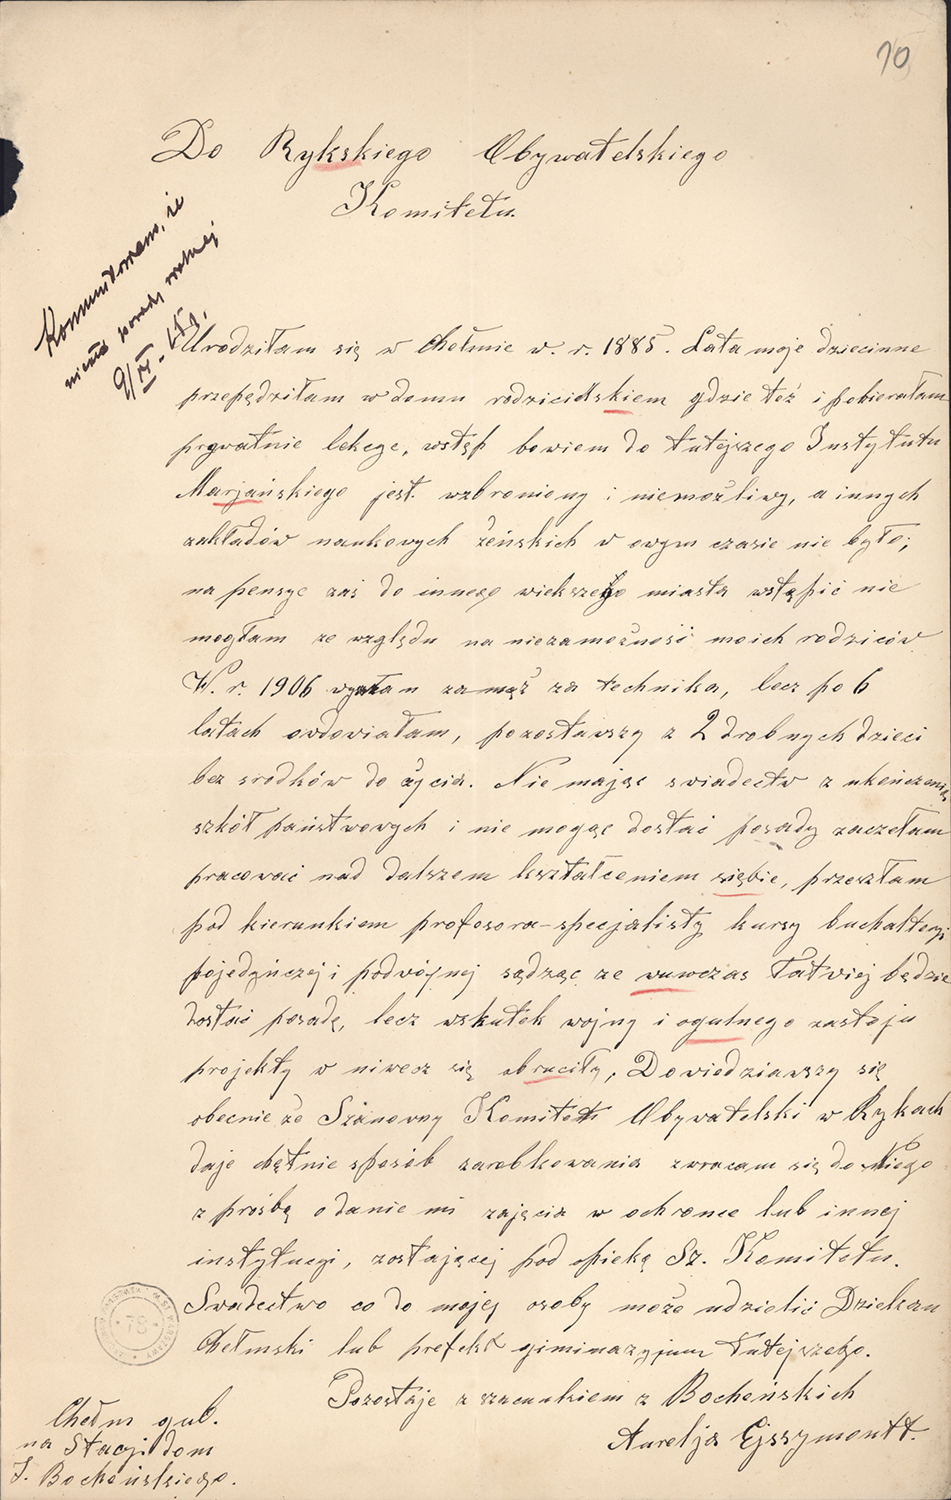 10
Do Rykskiego Obywatelskiego
Komitetu.
że
9/III - 15 r.
Urodziłam się w Chełmie w. r. 1885. Lata moje dziecinne
przepędziłam w domu rodzicielskiem gdzie też i pobierałam
prywatnie lekcye, wstęp bowiem do tutejszego Instytutu
Marjańskiego jest wzbroniony i niemożliwy, a innych
zakładów naukowych żeńskich w owym czasie nie było;
na pensye zaś do innego wiekszego miasta wstąpić nie
mogłam ze względu na niezamożność moich rodziców.
W. r. 1906 wyszłam zamąż za technika, lecz po 6
latach owdowiałam, pozostawszy z 2 drobnych dzieci
bez srodków do życia. Nie mając swiadectw z ukończenia
szkół państwowych i nie mogąc dostać posady zaczełam
pracować nad dalszem kształceniem siębie, przeszłam
pod kierunkiem profesora-specjalisty kursy buchalteryi
pojedyńczej i podwójnej sądząc ze wuwczas łatwiej będzie
dostać posadę, lecz wskutek wojny i ogulnego zastoju
projekty w niwecz się obruciły, Dowiedziawszy się
obecnie że Szanowny Komitet Obywatelski w Rykach
daje chętnie sposób zarobkowania zwracam się do Niego
z prośbą o danie mi zajęcia w ochronce lub innej
instytucyi, zostającej pod opieką Sz. Komitetu.
Swadectwo co do mojej osoby może udzielić Dziekan
Chełmski lub prefekt giminazyjum tutejszego.
Pozostaje z szacunkiem z Bocheńskich
Aurelja Ejssymontt.
78
Chełm gub.
na Stacyi dom
J. Bocheńskiego.